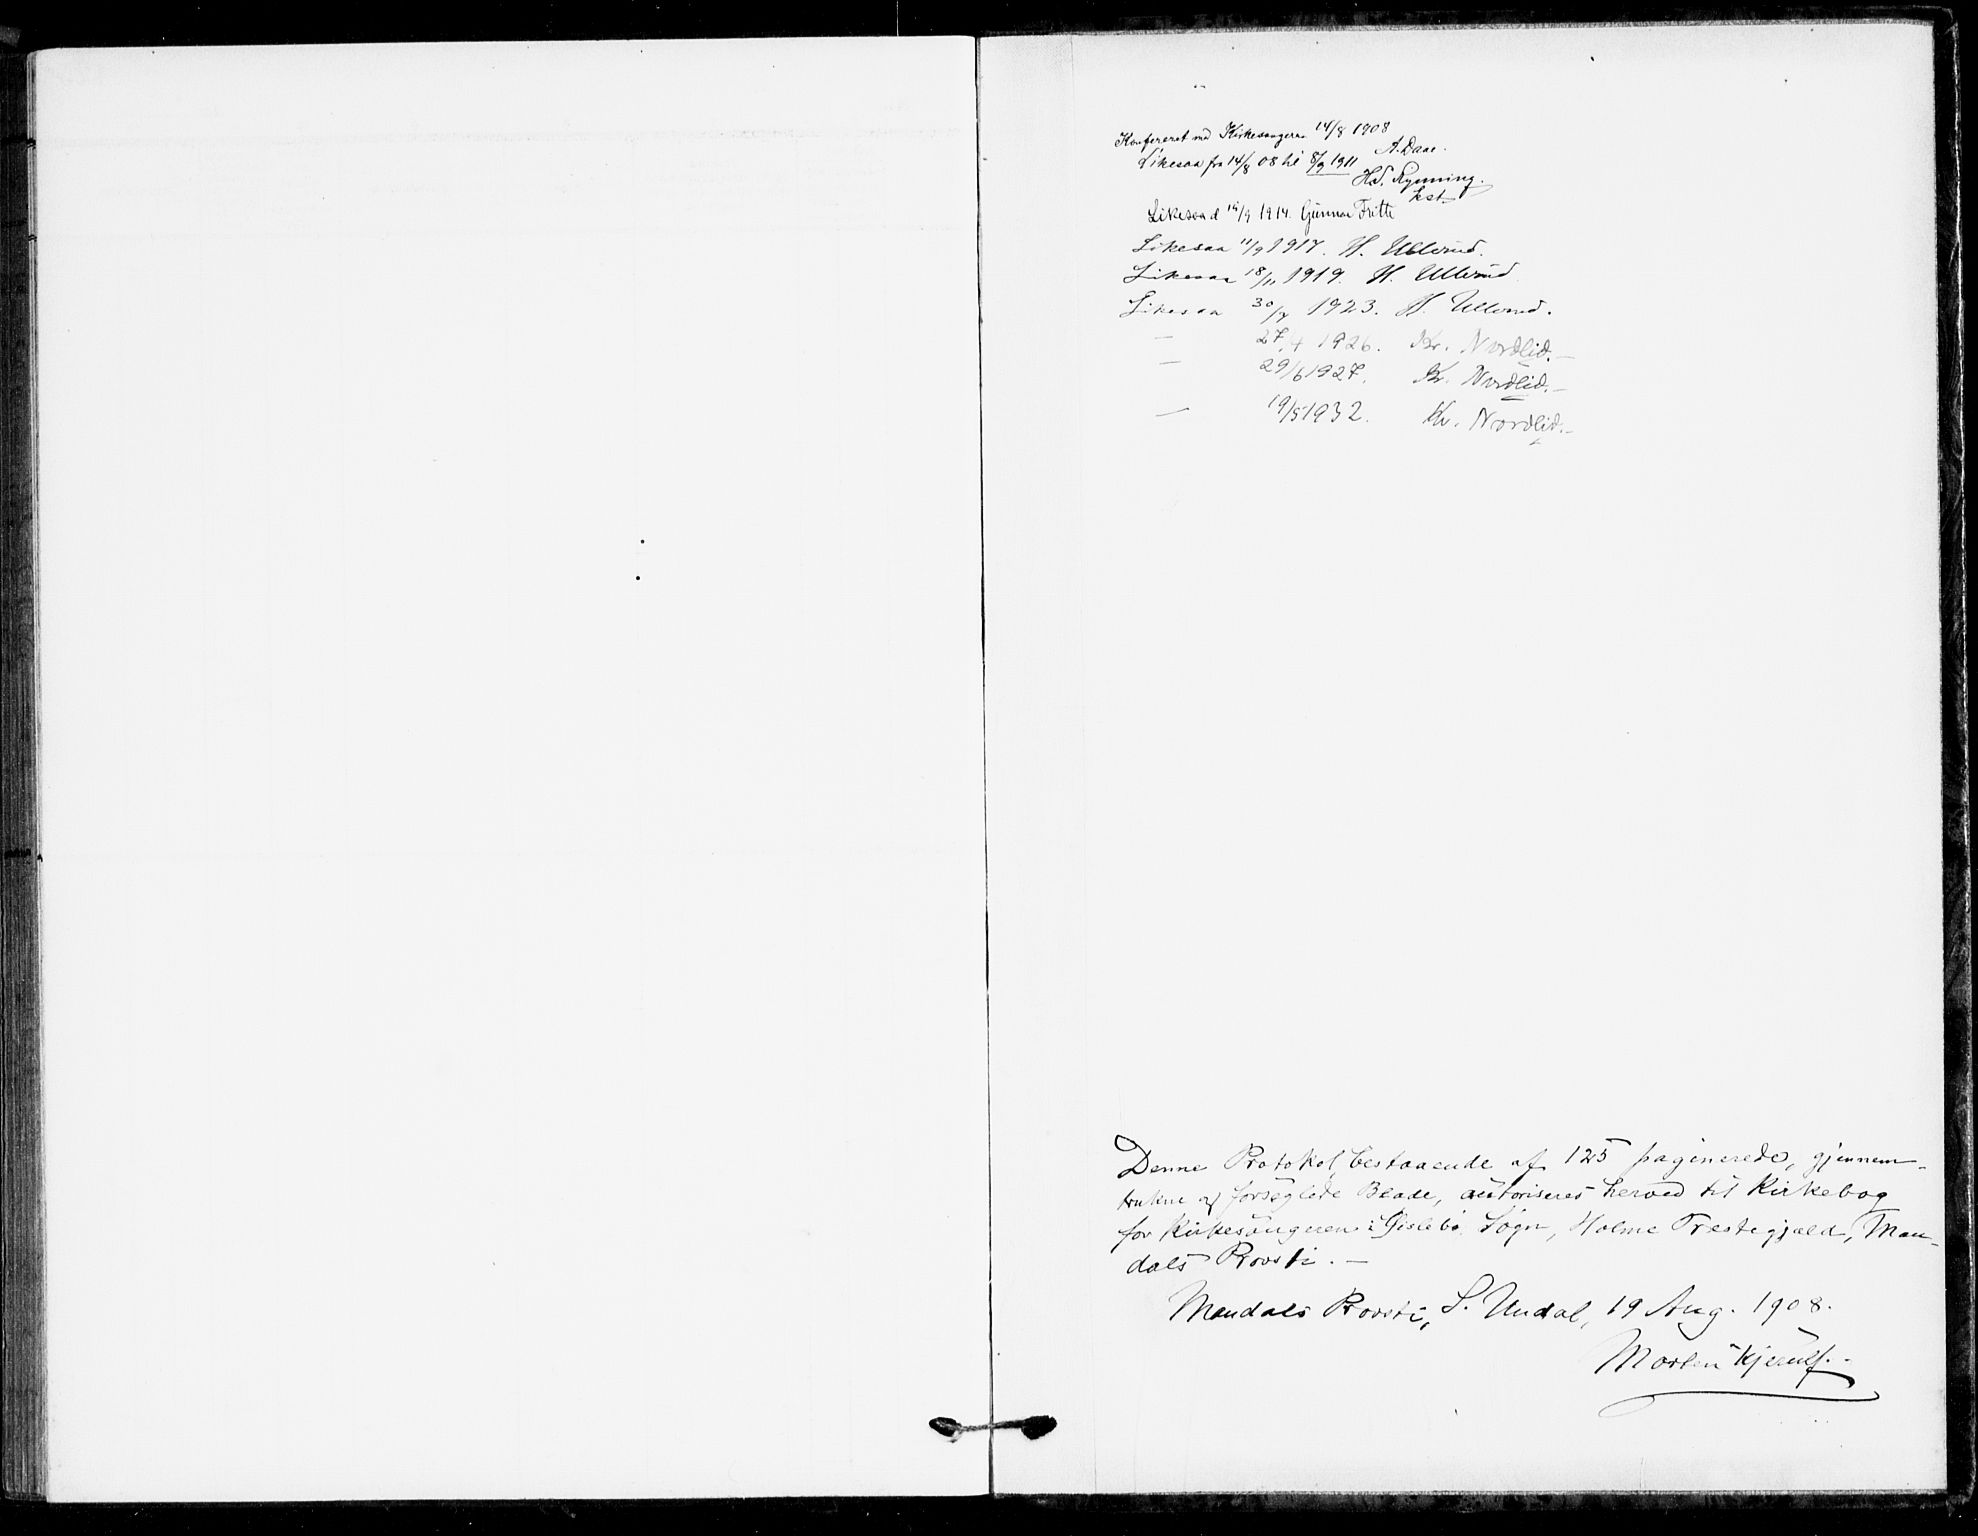 Konfereret med Kirkesangeren 14/8 1908
A. Daae.
Likesaa fra 14/8 08 til 8/9 1911
H. Rynning.
kst.
Likesaa d 14/9 1914. Gunnar Fritte
Likesaa 11/9 1917. H. Ullerud.
Likesaa 18/11 1919. H. Ullerud
Likesaa 30/7 1923. H. Ullerud.
— 27/4 1926. Kr. Nordlid.—
— 29/6 1927. Kr. Nordlid.—
— 19/5 1932. Kr. Nordlid.—
Denne Protokol, bestaaende af 125 paginerede, gjennem-
trukne og forseglede Blade, autoriseres herved til Kirkebog
for Kirkesangeren i Øislebø Sogn, Holme Præstegjæld, Man-
dals Provsti. —
Mandals Provsti, S. Undal, 19 Aug. 1908.
Morten Kjerulf.-